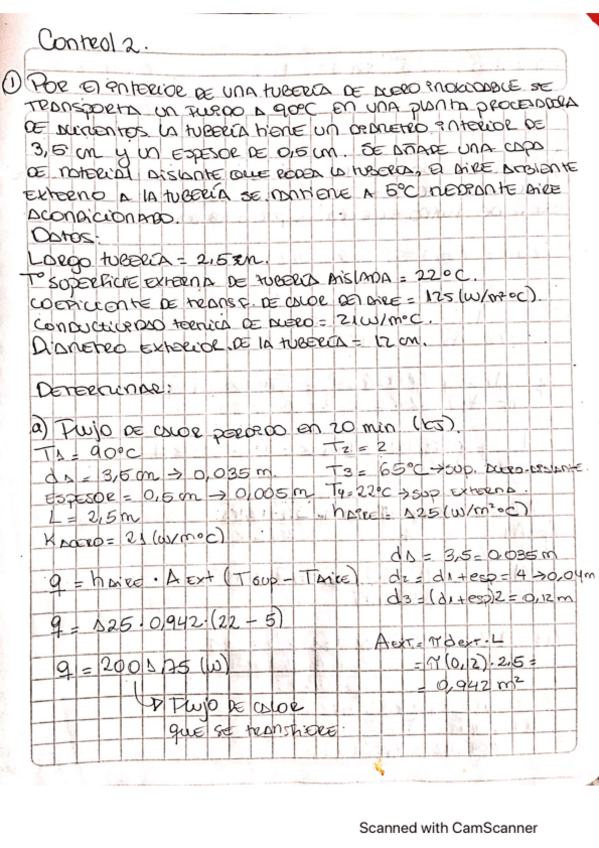 Control 2.
① POR El interior DE UNA TUBERÍA DE ACERO inoxidable SE
TRANSPORTA UN FLUIDO A 90°C EN UNA PLANTA PROCESADORA
DE ALIMENTOS LA TUBERÍA TIENE UN DIÁMETRO interior DE
3,5 cm y UN ESPESOR DE 0,5 cm. SE AÑADE UNA CAPA
DE MATERIAL AISLANTE QUE RODEA LA TUBERÍA, El AIRE AMBIENTE
EXTERNO A LA TUBERÍA SE MANTIENE A 5°C MEDIANTE AIRE
ACONDICIONADO.
DATOS:
LARGO TUBERÍA = 2,5 m.
T° SUPERFICIE EXTERNA DE TUBERÍA AISLADA = 22°C.
COEFICIENTE DE TRANSF. DE CALOR DEL AIRE = 125 (W/m²°C).
CONDUCTIVIDAD TERMICA DE ACERO = 21 W/m°C.
DIAMETRO EXTERIOR DE LA TUBERÍA = 12 cm.
DETERMINAR:
a) Flujo DE CALOR PERDIDO EN 20 min (kJ).
T1 = 90°C
T2 = 2
d1 = 3,5 cm → 0,035 m
T3 = 65°C → SUP. ACERO-AISLANTE.
ESPESOR = 0,5 cm → 0,005 m
T4 = 22°C → SUP EXTERNA.
L = 2,5 m
hAIRE = 125 (W/m²°C)
KACERO = 21 (W/m°C)
d1 = 3,5 = 0.035 m
q = hAIRE · A EXT (TSUP - TAIRE)
d2 = d1 + esp = 4 → 0,04 m
d3 = (d1 + esp)2 = 0,12 m
q = 125 · 0,942 · (22 - 5)
AEXT = π dext · L
q = 2001,75 (W)
= π(0,12) · 2,5 =
= 0,942 m²
↳ Flujo DE CALOR
QUE SE TRANSFIERE.
Scanned with CamScanner